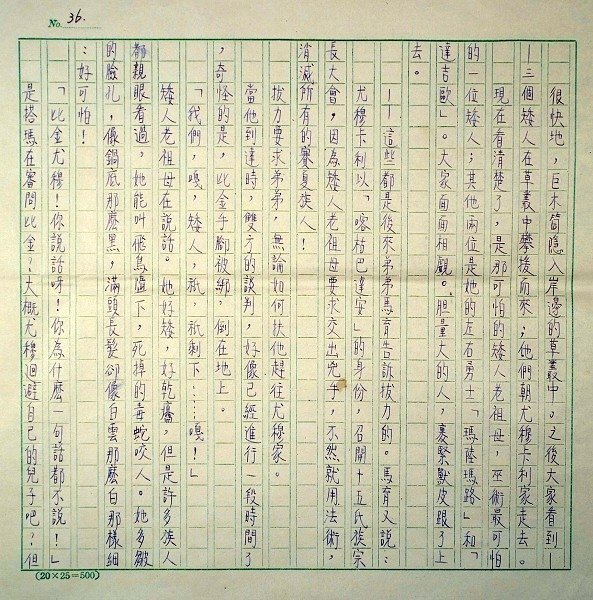 No. 36.
很快地，巨木筒隱入岸邊的草叢中。之後大家看到—
—三個矮人在草叢中攀援而來；他們朝尤穆卡利家走去。
現在看清楚了，是那可怕的矮人老祖母，巫術最可怕
的一位矮人；其他兩位是她的左右勇士「瑪陸瑪路」和「
達吉歐」。大家面面相覷。胆量大的人，裹緊獸皮跟了上
去。
——這些都是後來弟弟馬育告訴拔力的。馬育又說：
尤穆卡利以「喀枯巴達安」的身份，召開十五氏族宗
長大會，因為矮人老祖母要求交出兇手，不然就用法術，
消滅所有的賽夏族人！
拔力要求弟弟，無論如何扶他趕往尤穆家。
當他到達時，雙方的談判，好像已經進行一段時間了
，奇怪的是，比金手腳被綁，倒在地上。
「我們，嘎，矮人，祇，祇剩下……嘎！」
矮人老祖母在說話。她好矮，好乾癟，但是許多族人
都親眼看過，她能叫飛鳥墮下，死掉的毒蛇咬人。她多皺
的臉孔，像鍋底那麼黑，滿頭長髮卻像白雲那麼白那樣細
：好可怕！
「比金尤穆！你說話呀！你為什麼一句話都不說！」
是塔瑪在審問比金？大概尤穆迴避自己的兒子吧？但
(20×25=500)